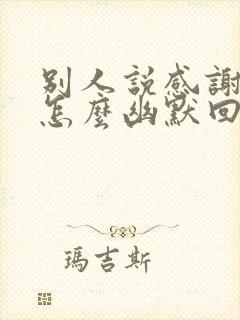 別人説感謝
怎麼幽默回
瑪吉斯